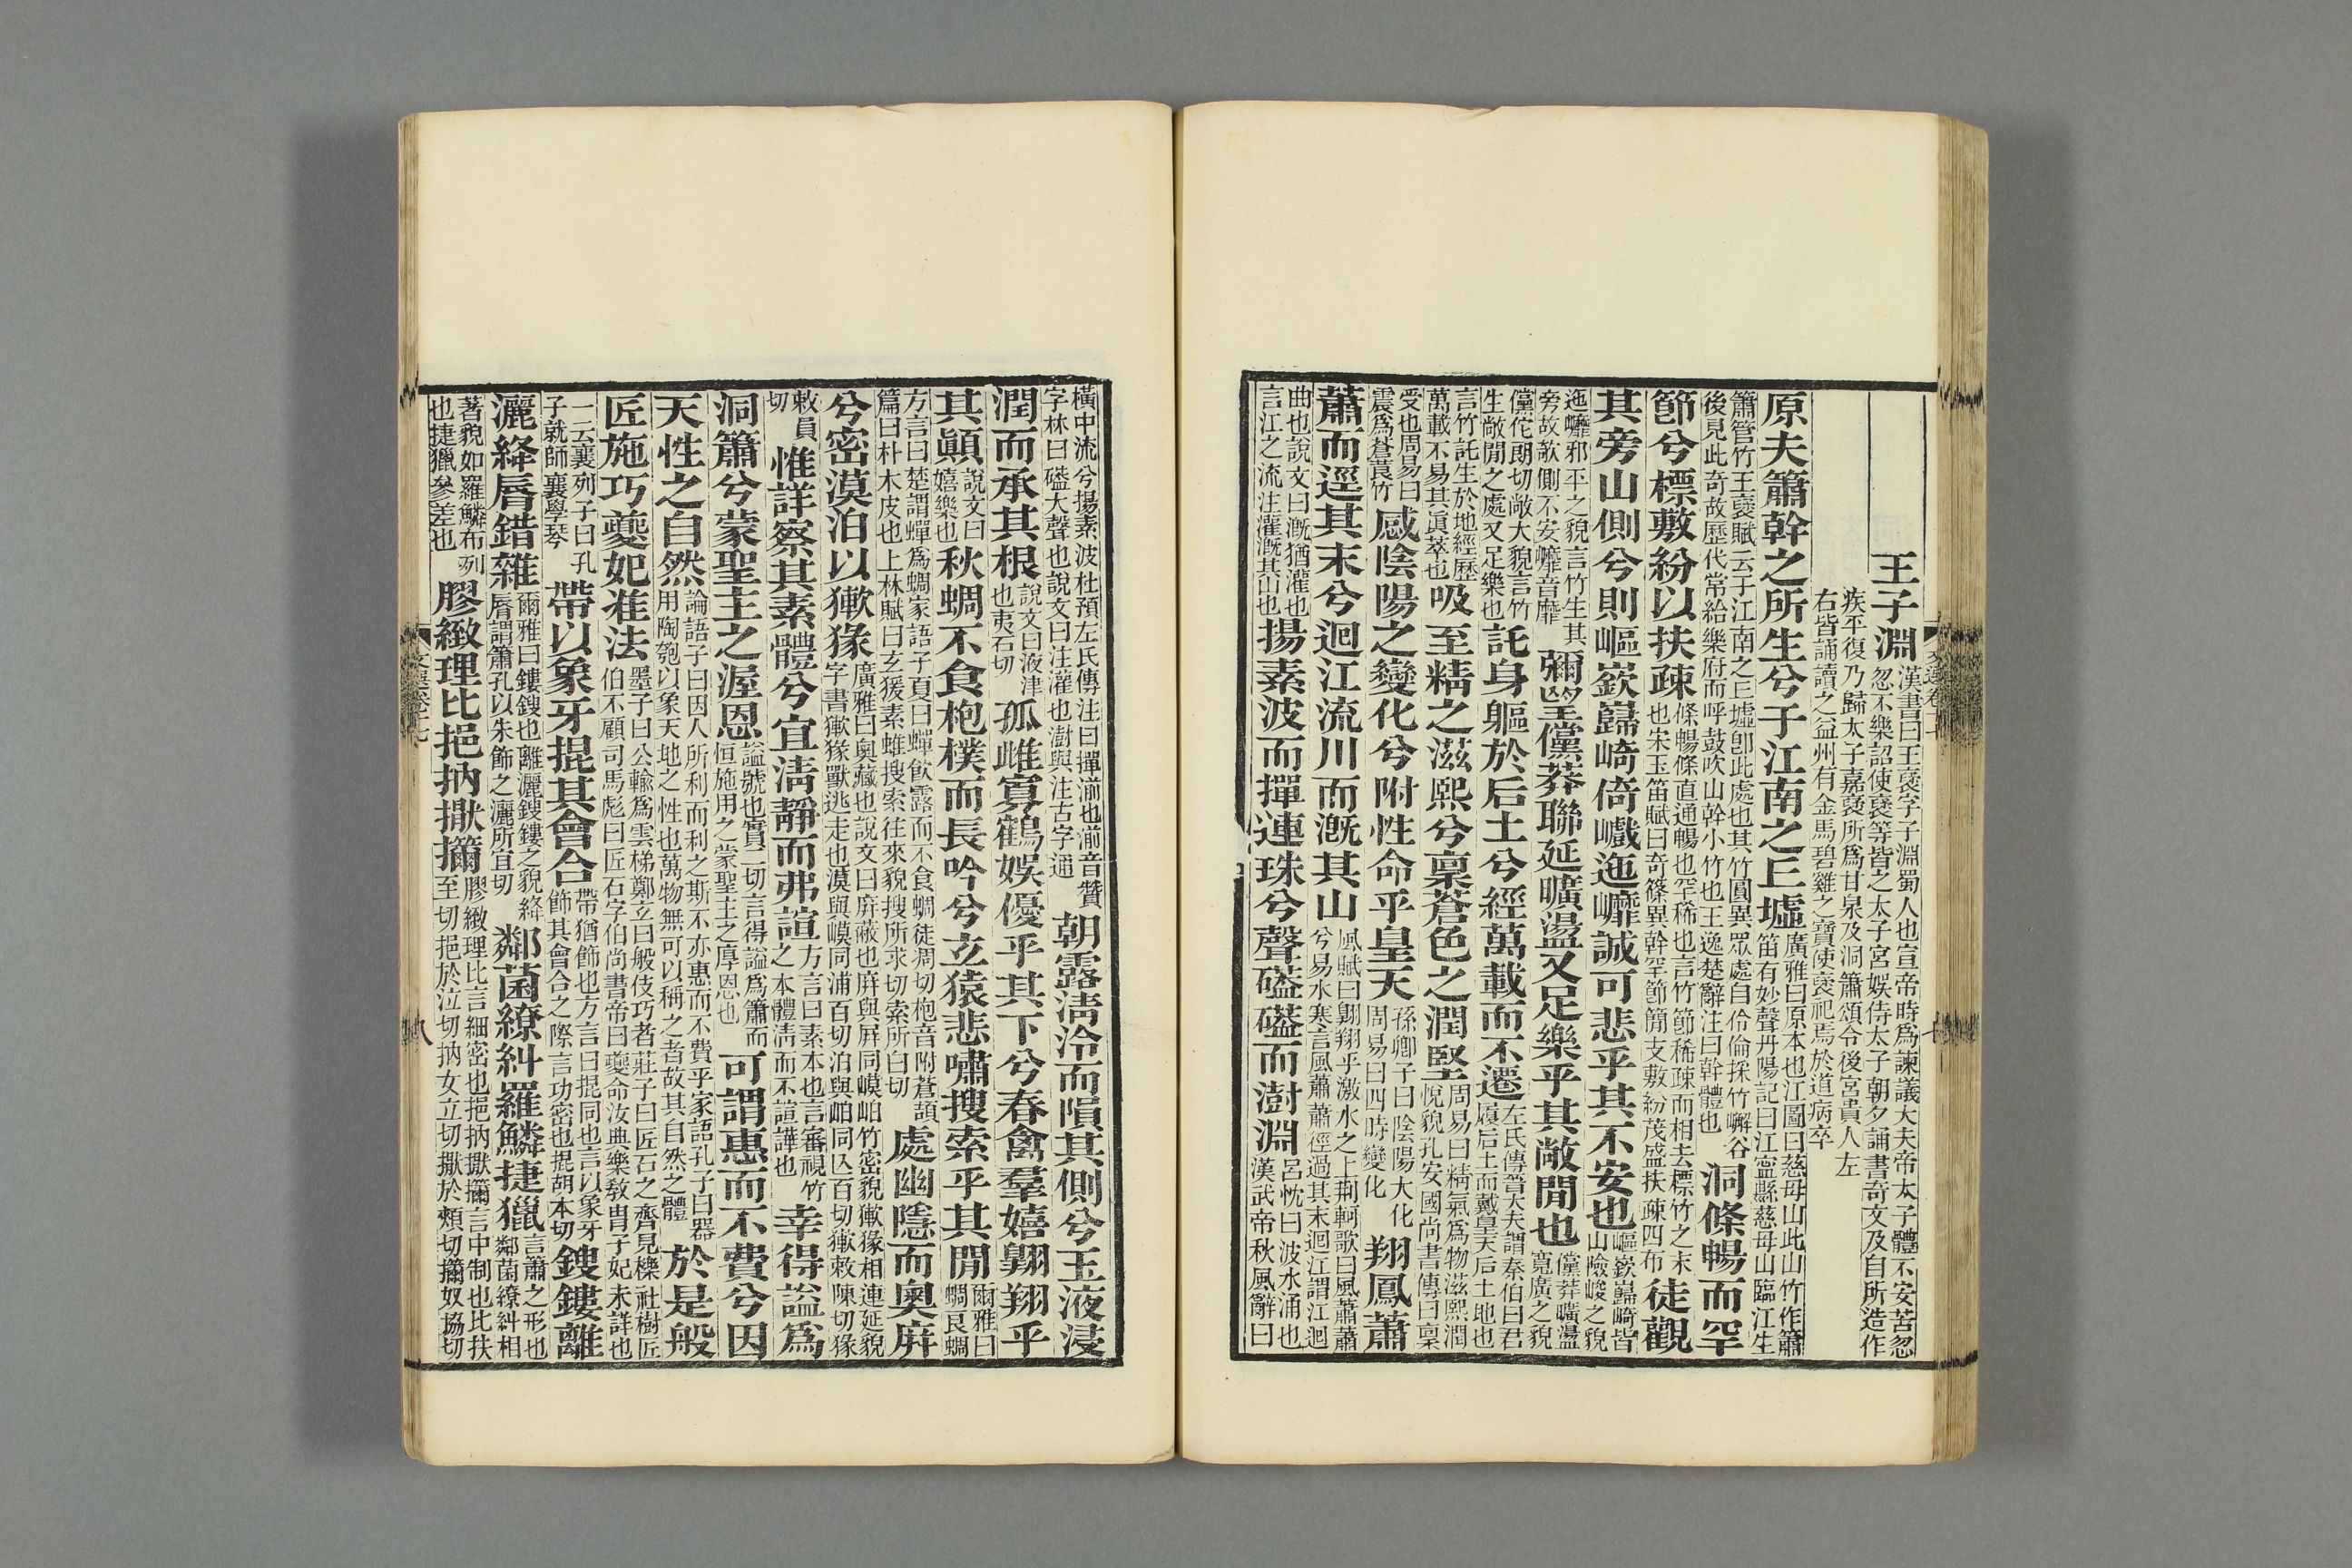 王子淵漢書曰王襃字子淵蜀人也宣帝時爲諫議大夫帝太子體不安苦忽
忽不樂詔使襃等皆之太子宮娛侍太子朝夕誦書奇文及自所造作
疾平復乃歸太子嘉襃所爲甘泉及洞簫頌令後宮貴人左
右皆誦讀之益州有金馬碧雞之寶使襃祀焉於道病卒
原夫簫幹之所生兮于江南之丘墟廣雅曰原本也江圖曰慈母山此山竹作簫
笛有妙聲丹陽記曰江寧縣慈母山臨江生
簫管竹王襃賦云于江南之丘墟卽此處也其竹圓異眾處自伶倫採竹嶰谷
後見此奇故歷代常給樂府而呼鼓吹山幹小竹也王逸楚辭注曰幹體也洞條暢而罕
節兮標敷紛以扶疎條暢條直通暢也罕稀也言竹節稀疎而相去標竹之末
也宋玉笛賦曰奇篠異幹罕節簡支敷紛茂盛扶疎四布徒觀
其旁山側兮則嶇嶔巋崎倚巇迤㠥誠可悲乎其不安也嶇嶔巋崎皆
山險峻之貌
迤㠥邪平之貌言竹生其
旁故欹側不安㠥音靡彌望儻莽聯延曠盪又足樂乎其敞閒也儻莽曠盪
寬廣之貌
儻佗朗切敞大貌言竹
生敞閒之處又足樂也託身軀於后土兮經萬載而不遷左氏傳晉大夫謂秦伯曰君
履后土而戴皇天后土地也
言竹託生於地經歷
萬載不易其貞萃也吸至精之滋熙兮稟蒼色之潤堅周易曰精氣爲物滋熙潤
悅貌孔安國尚書傳曰稟
受也周易曰
震爲蒼莨竹感陰陽之變化兮附性命乎皇天孫卿子曰陰陽大化
周易曰四時變化翔鳳蕭
蕭而逕其末兮迴江流川而溉其山風賦曰翺翔乎激水之上荆軻歌曰風蕭蕭
兮易水寒言風蕭蕭徑過其末迴江謂江迴
曲也說文曰溉猶灌也
言江之流注灌溉其山也揚素波而揮連珠兮聲磕磕而澍淵呂忱曰波水涌也
漢武帝秋風辭曰
橫中流兮揚素波杜預左氏傳注曰揮湔也湔音贊
字林曰磕大聲也說文曰注灌也澍與注古字通朝露淸泠而隕其側兮玉液浸
潤而承其根說文曰液津
也夷石切孤雌寡鶴娛優乎其下兮春禽羣嬉翺翔乎
其顚說文曰
嬉樂也秋蜩不食抱樸而長吟兮玄猿悲嘯搜索乎其閒爾雅曰
蜩蜋蜩
方言曰楚謂蟬爲蜩家語子夏曰蟬飮露而不食蜩徒凋切抱音附蒼頡
篇曰朴木皮也上林賦曰玄猨素雌搜索往來貌搜所求切索所白切處幽隱而奧屛
兮密漠泊以𤟛猭廣雅曰奧藏也說文曰屛蔽也屛與屏同嵮岶竹密貌𤟛猭相連延貌
字書𤟛猭獸逃走也漠與嵮同浦百切泊與岶同亾百切𤟛敕陳切猭
敕員
切惟詳察其素體兮宜淸靜而弗諠方言曰素本也言審視竹
之本體淸而不諠譁也幸得謚爲
洞簫兮蒙聖主之渥恩謚號也實二切言得謚爲簫而
恒施用之蒙聖主之厚恩也可謂惠而不費兮因
天性之自然論語子曰因人所利而利之斯不亦惠而不費乎家語孔子曰器
用陶匏以象天地之性也萬物無可以稱之者故其自然之體於是般
匠施巧夔妃准法墨子曰公輸爲雲梯鄭玄曰般伎巧者莊子曰匠石之齊見櫟社樹匠
伯不顧司馬彪曰匠石字伯尚書帝曰夔命汝典樂敎胄子妃未詳也
一云襄列子曰孔
子就師襄學琴帶以象牙掍其會合帶猶飾也方言曰掍同也言以象牙
飾其會合之際言功密也掍胡本切鎪鏤離
灑絳脣錯雜爾雅曰鏤鎪也離灑鎪鏤之貌絳
脣謂簫孔以朱飾之灑所宜切鄰菌繚糾羅鱗捷獵言簫之形也
鄰菌繚糾相
著貌如羅鱗布列
也捷獵參差也膠緻理比挹抐擫㩎膠緻理比言細密也挹抐擫㩎言中制也比扶
至切挹於泣切抐女立切擫於頰切㩎奴協切
八